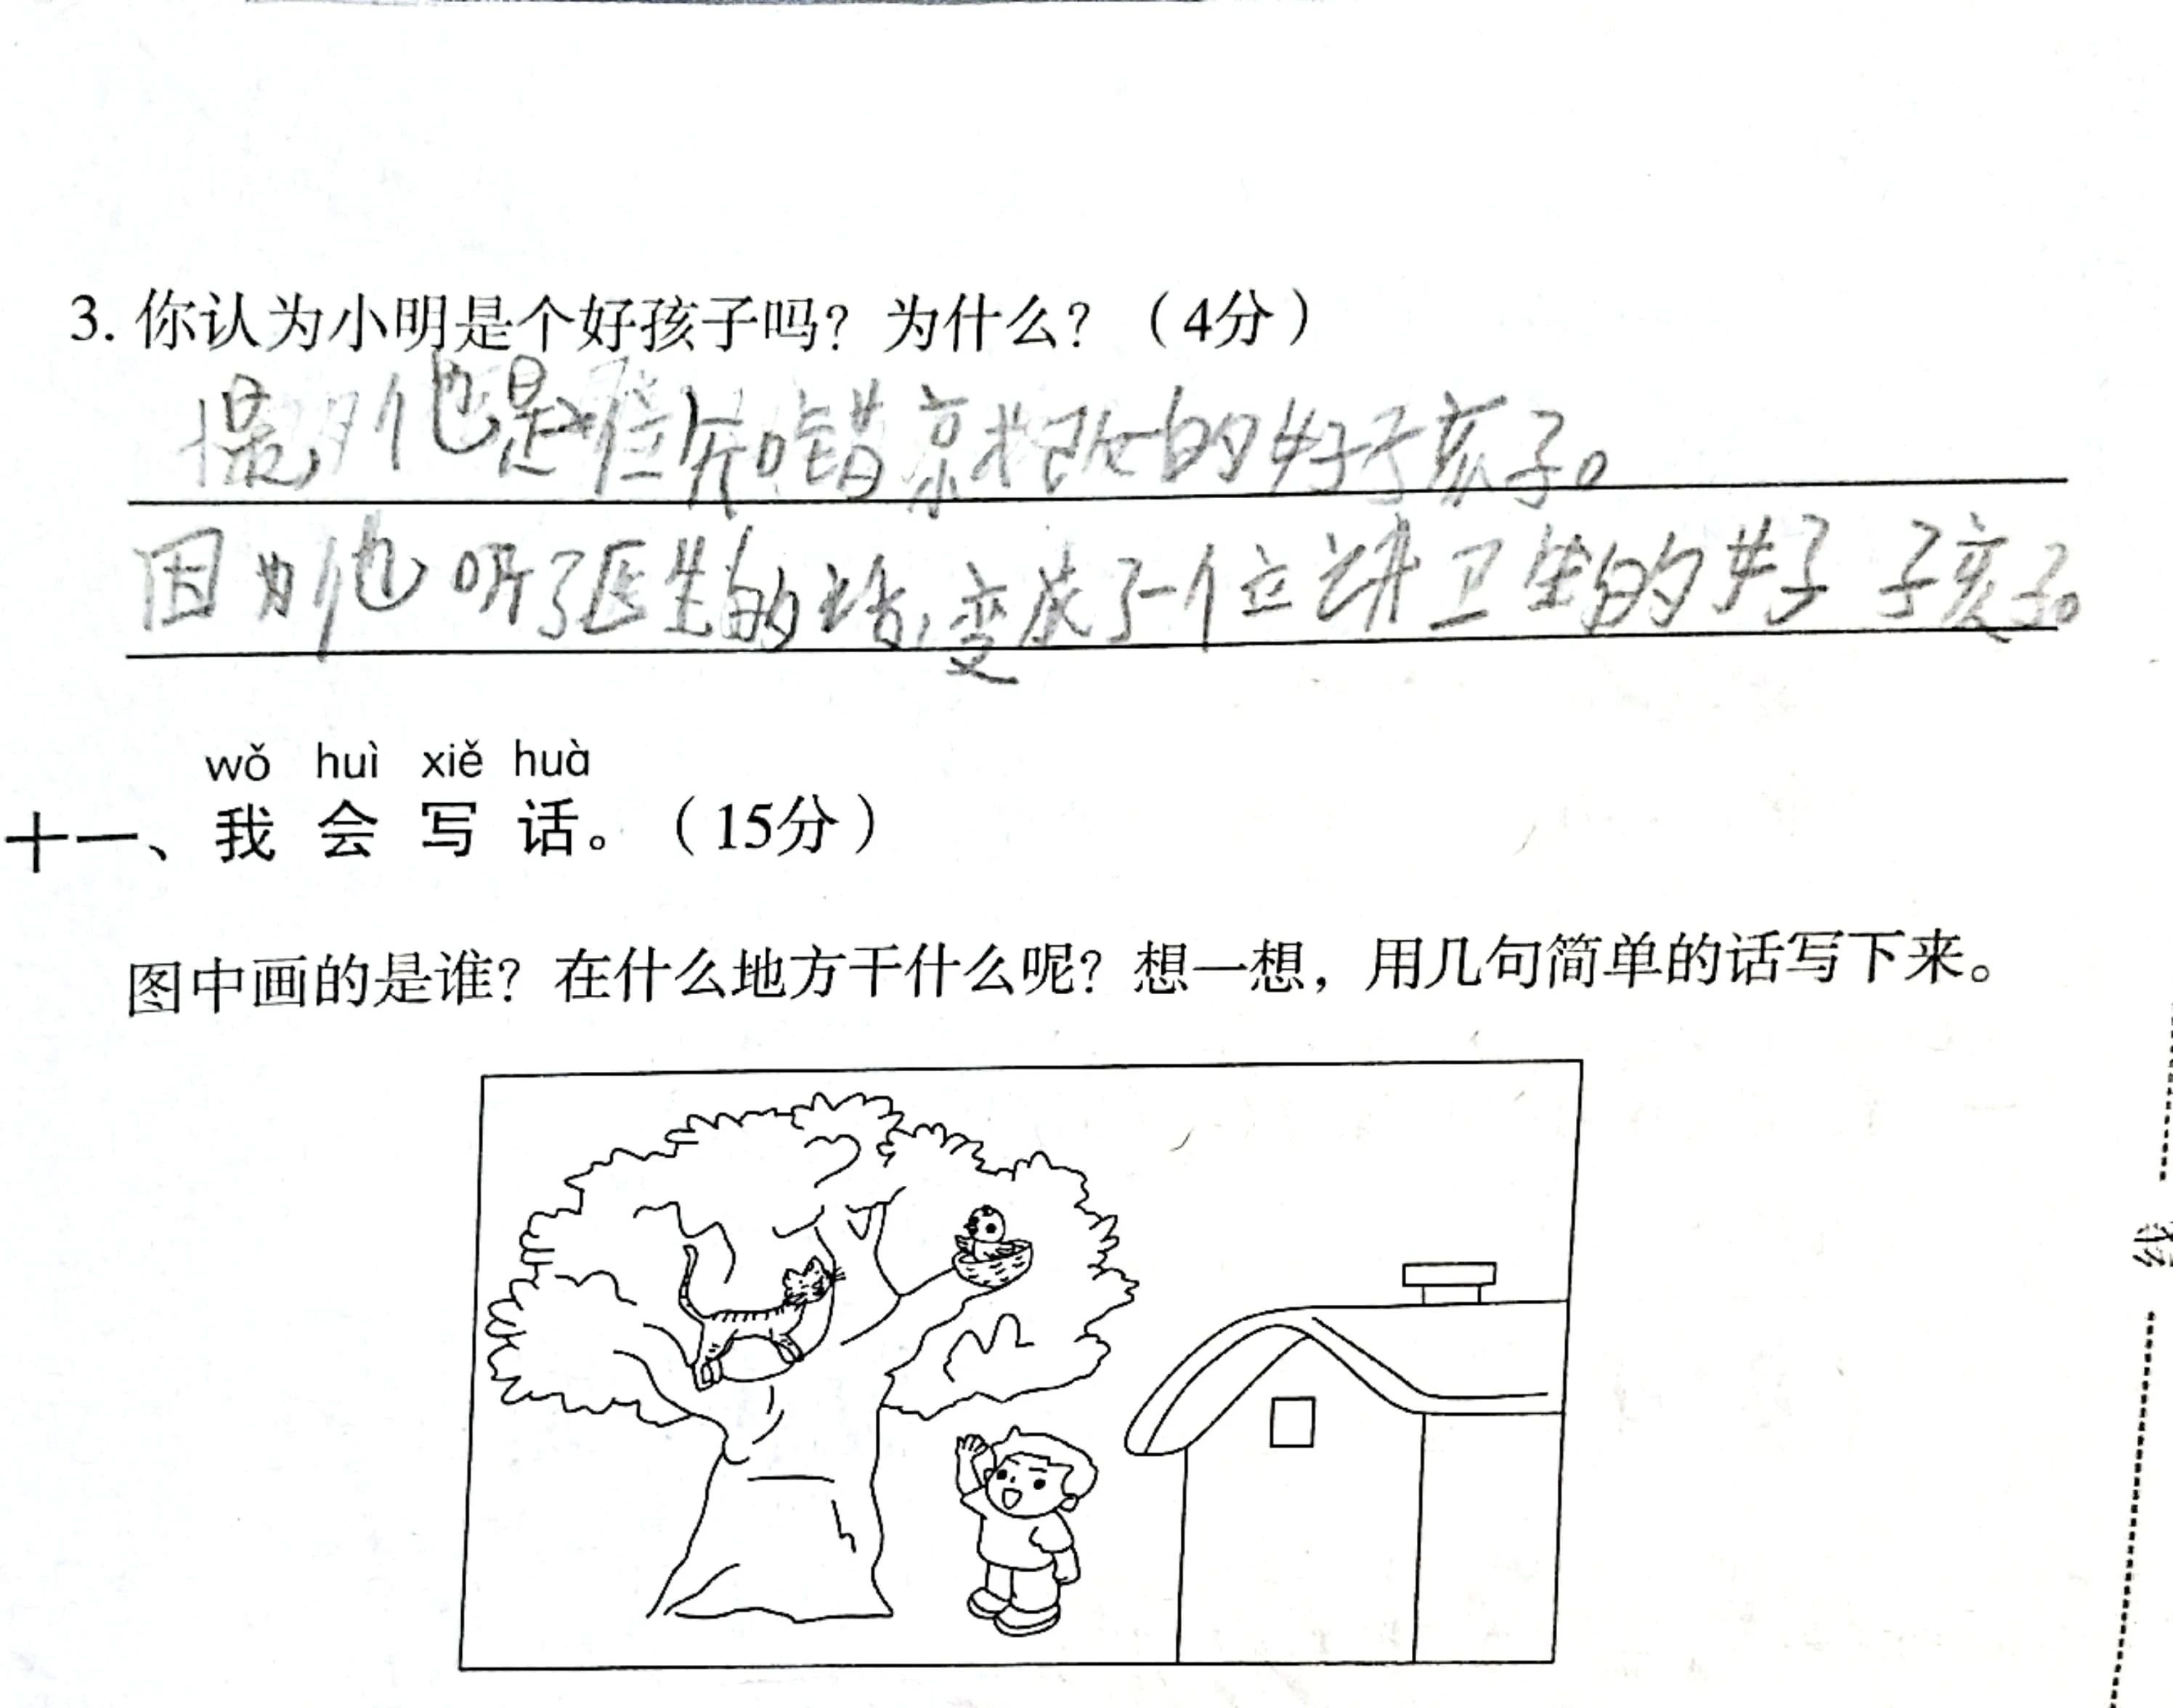 3. 你认为小明是个好孩子吗？为什么？（4分）
是，他是一位知错就改的好孩子。
因为他听了医生的话，变成了一个位讲卫生的好孩子。
wǒ huì xiě huà
十一、我会写话。（15分）
图中画的是谁？在什么地方干什么呢？想一想，用几句简单的话写下来。